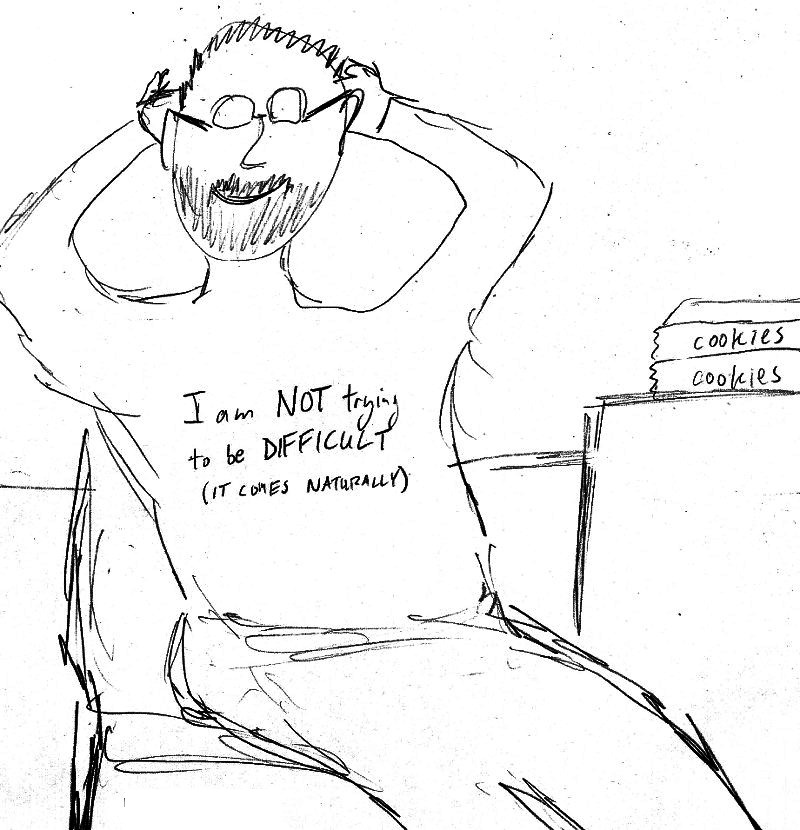 I am NOT trying
to be DIFFICULT
(IT COMES NATURALLY)
cookies
cookies